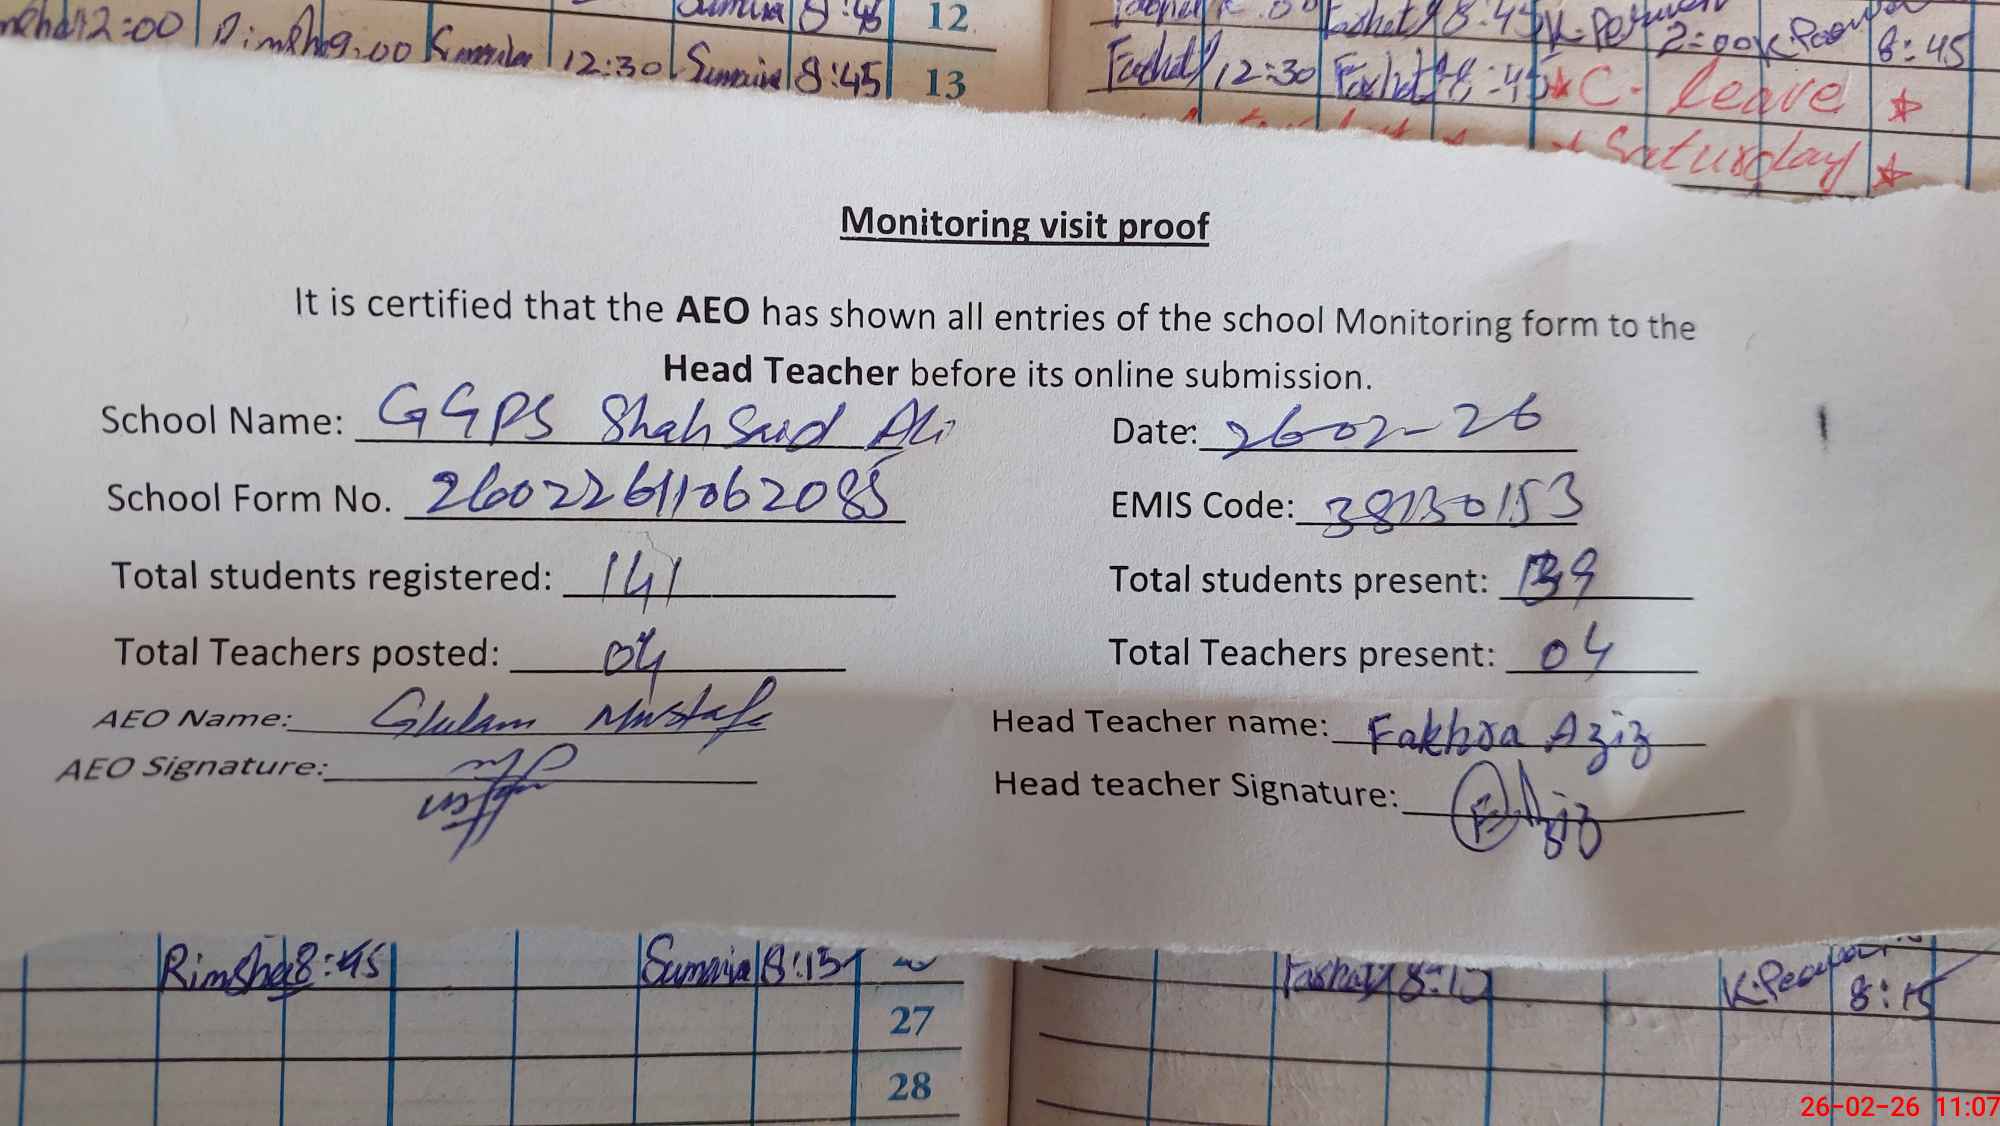 12:00 Rimsha 9:00 Sumaira 12:30 Sumaira 8:45 13
8:45 12
8:45 K.Perveen 2:00 8:45
12:30 8:45 * C- leave *
Saturday *
Monitoring visit proof
It is certified that the AEO has shown all entries of the school Monitoring form to the
Head Teacher before its online submission.
School Name: GGPS Shah Said Ali Date: 26-02-26
School Form No. 26022611062085 EMIS Code: 38130153
Total students registered: 141 Total students present: 139
Total Teachers posted: 04 Total Teachers present: 04
AEO Name: Ghulam Mustafa Head Teacher name: Fakhra Aziz
AEO Signature: Head teacher Signature: F. Aziz
Rimsha 8:45 Sumaira 8:15 8:15 K.Perveen 8:15
27
28
26-02-26 11:07